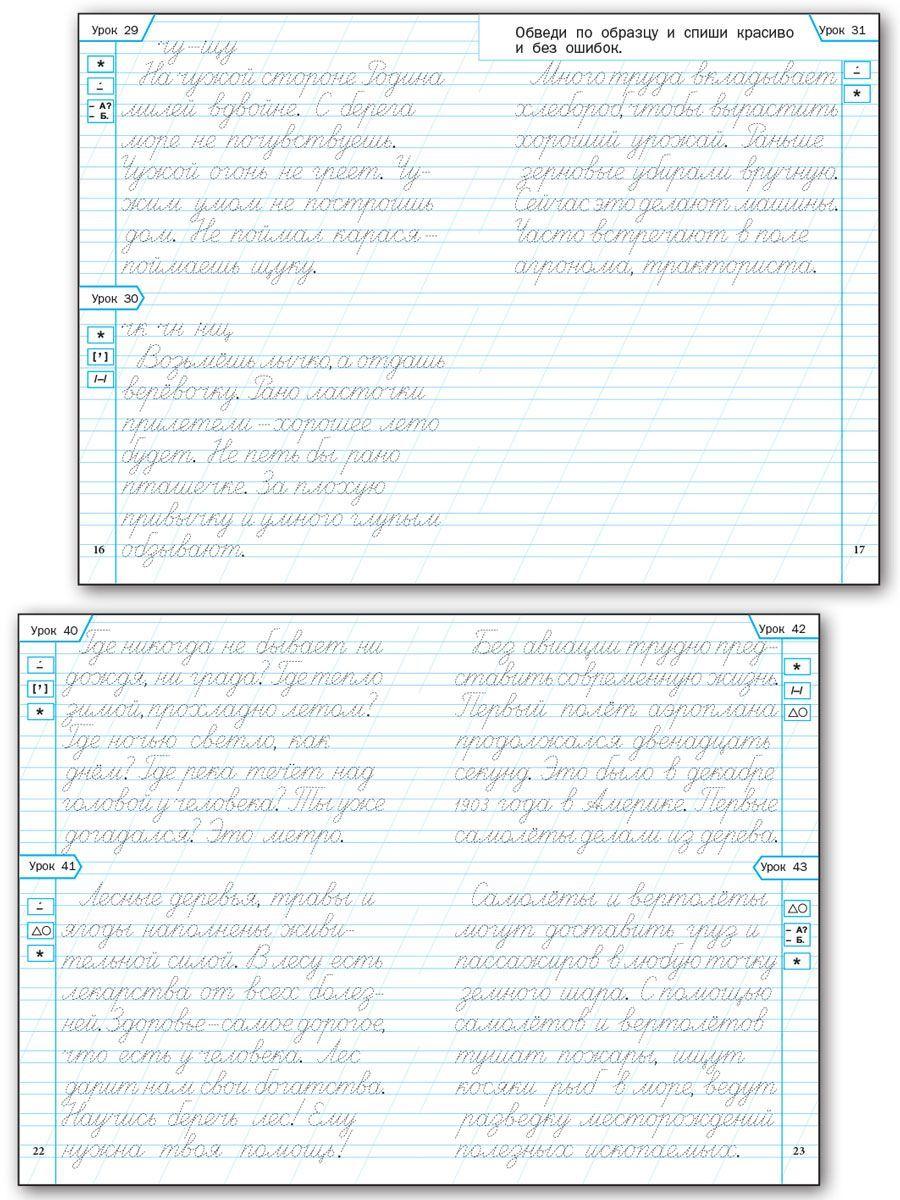 Урок 29
чу-щу
На чужой стороне Родина
милей вдвойне. С берега
море не почувствуешь.
Чужой огонь не греет. Чу-
жим умом не построишь
дом. Не поймал карася –
поймаешь щуку.
*
– А?
– Б.
Урок 30
чк чн нщ
Возьмёшь лычко, а отдашь
верёвочку. Рано ласточки
прилетели – хорошее лето
будет. Не петь бы рано
пташечке. За плохую
привычку и умного глупым
обзывают.
*
[']
/–/
16
Обведи по образцу и спиши красиво
и без ошибок.
Урок 31
Много труда вкладывает
хлебороб, чтобы вырастить
хороший урожай. Раньше
зерновые убирали вручную.
Сейчас это делают машины.
Часто встречают в поле
агронома, тракториста.
*
17
Урок 40
Где никогда не бывает ни
дождя, ни града? Где тепло
зимой, прохладно летом?
Где ночью светло, как
днём? Где река течёт над
головой у человека? Ты уже
догадался? Это метро.
[']
*
Урок 41
Лесные деревья, травы и
ягоды наполнены живи-
тельной силой. В лесу есть
лекарства от всех болез-
ней. Здоровье – самое дорогое,
что есть у человека. Лес
дарит нам свои богатства.
Научись беречь лес! Ему
нужна твоя помощь!
△○
*
22
Урок 42
Без авиации трудно пред-
ставить современную жизнь.
Первый полёт аэроплана
продолжался двенадцать
секунд. Это было в декабре
1903 года в Америке. Первые
самолёты делали из дерева.
*
/–/
△○
Урок 43
Самолёты и вертолёты
могут доставить груз и
пассажиров в любую точку
земного шара. С помощью
самолётов и вертолётов
тушат пожары, ищут
косяки рыб в море, ведут
разведку месторождений
полезных ископаемых.
△○
– А?
– Б.
*
23